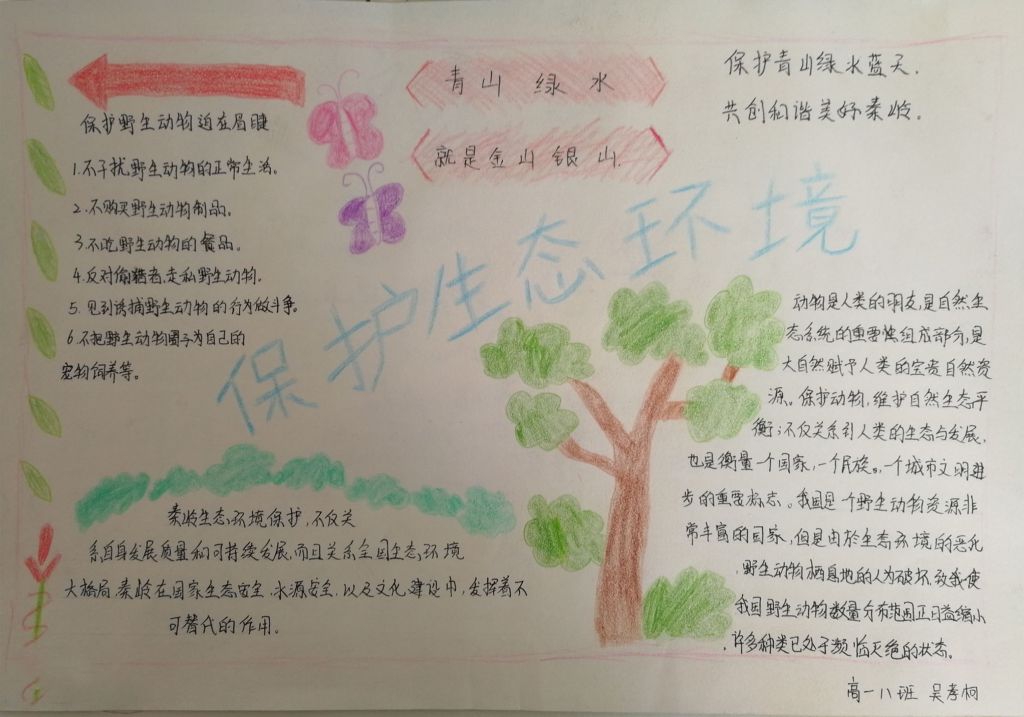 保护野生动物迫在眉睫
1.不干扰野生动物的正常生活。
2.不购买野生动物制品。
3.不吃野生动物的餐品。
4.反对偷猎者、走私野生动物.
5.见到诱捕野生动物的行为做斗争。
6.不把野生动物圈予为自己的
宠物饲养等。
青山绿水
就是金山银山.
保护青山绿水蓝天.
共创和谐美好秦岭。
保护生态环境
秦岭生态环境保护,不仅关
系自身发展质量和可持续发展,而且关系全国生态环境
大格局.秦岭在国家生态安全.水源安全.以及文化建设中,发挥着不
可替代的作用。
动物是人类的朋友,是自然生
态系统的重要组成部分,是
大自然赋予人类的宝贵自然资
源。保护动物,维护自然生态平
衡;不仅关系到人类的生态与发展.
也是衡量一个国家,一个民族。,一个城市文明进
步的重要标志。我国是一个野生动物资源非
常丰富的国家,但是由於生态环境的恶化
.野生动物栖息地的人为破坏.致我使
我国野生动物数量分布范围正日益缩小
.许多种类已处于濒临灭绝的状态。
高一八班 吴孝柯